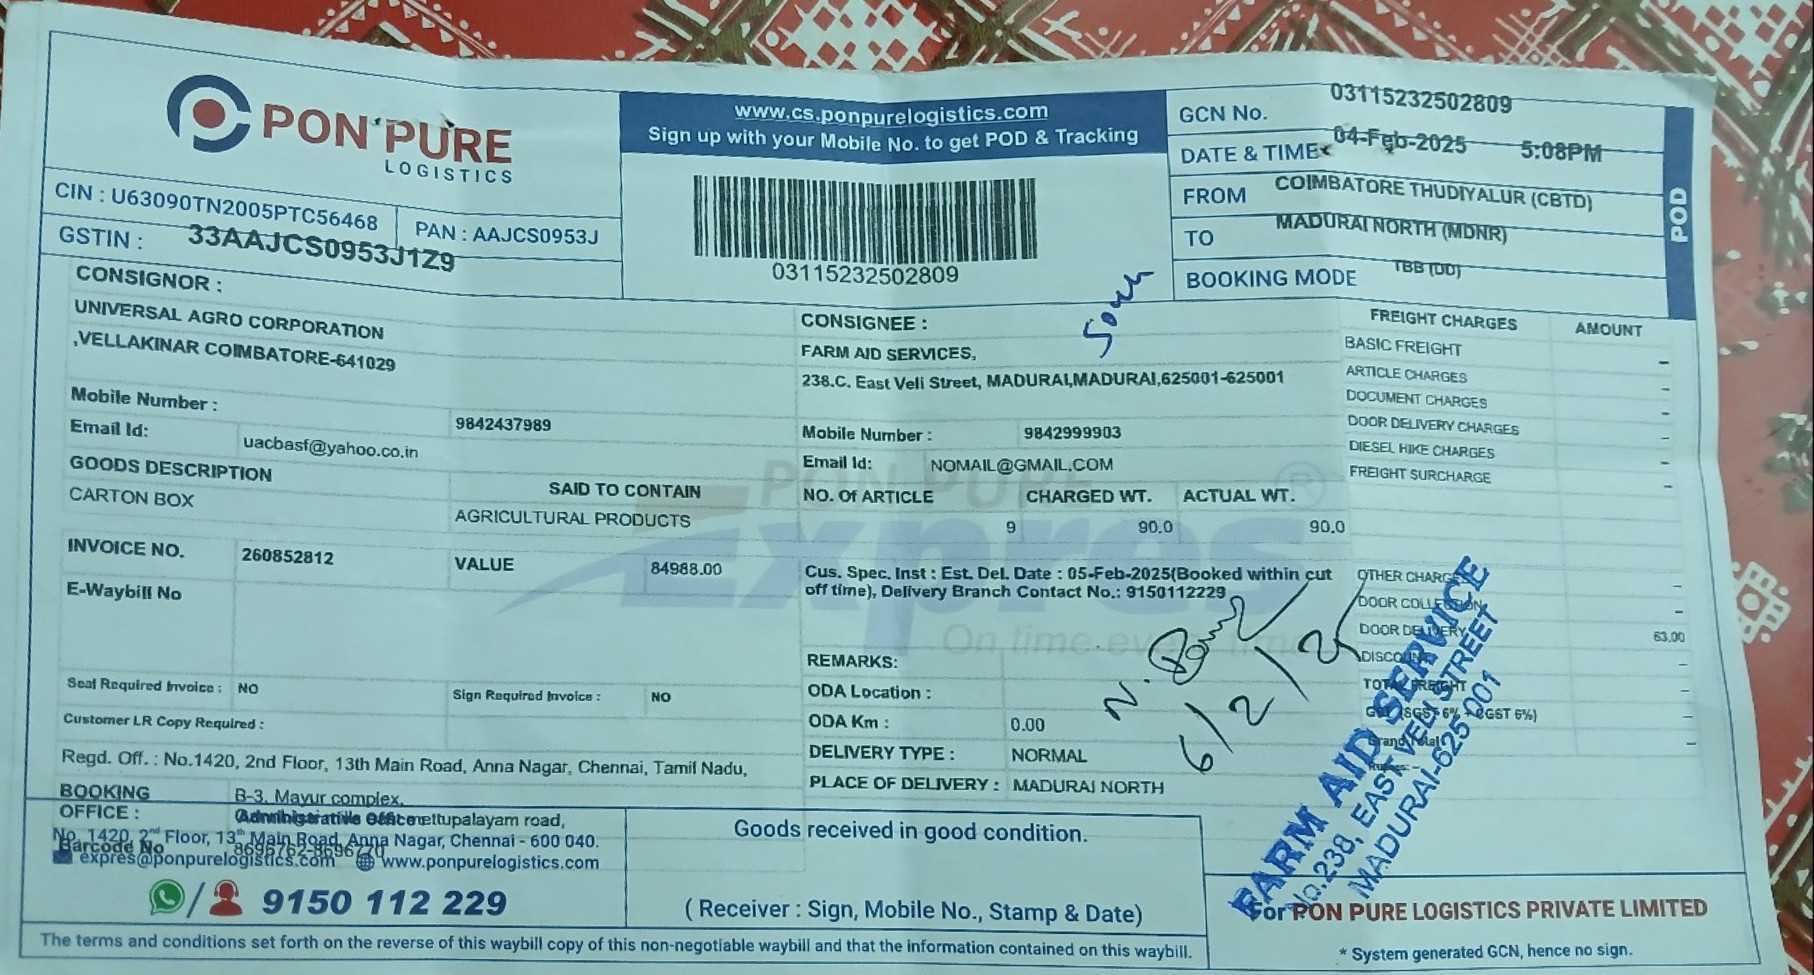 PON PURE
LOGISTICS
CIN : U63090TN2005PTC56468 PAN : AAJCS0953J
GSTIN : 33AAJCS0953J1Z9
www.cs.ponpurelogistics.com
Sign up with your Mobile No. to get POD & Tracking
03115232502809
GCN No. 03115232502809
DATE & TIME 04-Feb-2025 5:08PM
FROM COIMBATORE THUDIYALUR (CBTD)
TO MADURAI NORTH (MDNR)
BOOKING MODE TBB (DD)
POD
CONSIGNOR :
UNIVERSAL AGRO CORPORATION
,VELLAKINAR COIMBATORE-641029
Mobile Number : 9842437989
Email Id: uacbasf@yahoo.co.in
CONSIGNEE :
FARM AID SERVICES,
238.C. East Veli Street, MADURAI,MADURAI,625001-625001
Mobile Number : 9842999903
Email Id: NOMAIL@GMAIL.COM
GOODS DESCRIPTION SAID TO CONTAIN
CARTON BOX AGRICULTURAL PRODUCTS
NO. Of ARTICLE CHARGED WT. ACTUAL WT.
9 90.0 90.0
INVOICE NO. 260852812 VALUE 84988.00
E-Waybill No
Cus. Spec. Inst : Est. Del. Date : 05-Feb-2025(Booked within cut
off time), Delivery Branch Contact No.: 9150112229
PON PURE
Expres
On time every time
Seal Required Invoice : NO Sign Required Invoice : NO
Customer LR Copy Required :
REMARKS:
ODA Location :
ODA Km : 0.00
DELIVERY TYPE : NORMAL
PLACE OF DELIVERY : MADURAI NORTH
6/2/25
FREIGHT CHARGES AMOUNT
BASIC FREIGHT -
ARTICLE CHARGES -
DOCUMENT CHARGES -
DOOR DELIVERY CHARGES -
DIESEL HIKE CHARGES -
FREIGHT SURCHARGE -
OTHER CHARGES -
DOOR COLLECTION -
DOOR DELIVERY 63.00
DISCOUNT -
TOTAL FREIGHT -
GST (SGST 6% + CGST 6%) -
Grand Total -
Rupees: -
FARM AID SERVICE
No.238, EAST VELI STREET
MADURAI-625 001
Regd. Off. : No.1420, 2nd Floor, 13th Main Road, Anna Nagar, Chennai, Tamil Nadu,
BOOKING
OFFICE :
B-3, Mayur complex,
mettupalayam road,
Administrative Office
No. 1420, 2nd Floor, 13th Main Road, Anna Nagar, Chennai - 600 040.
Barcode No 8696762-8696770
expres@ponpurelogistics.com www.ponpurelogistics.com
/ 9150 112 229
Goods received in good condition.
( Receiver : Sign, Mobile No., Stamp & Date)
For PON PURE LOGISTICS PRIVATE LIMITED
* System generated GCN, hence no sign.
The terms and conditions set forth on the reverse of this waybill copy of this non-negotiable waybill and that the information contained on this waybill.